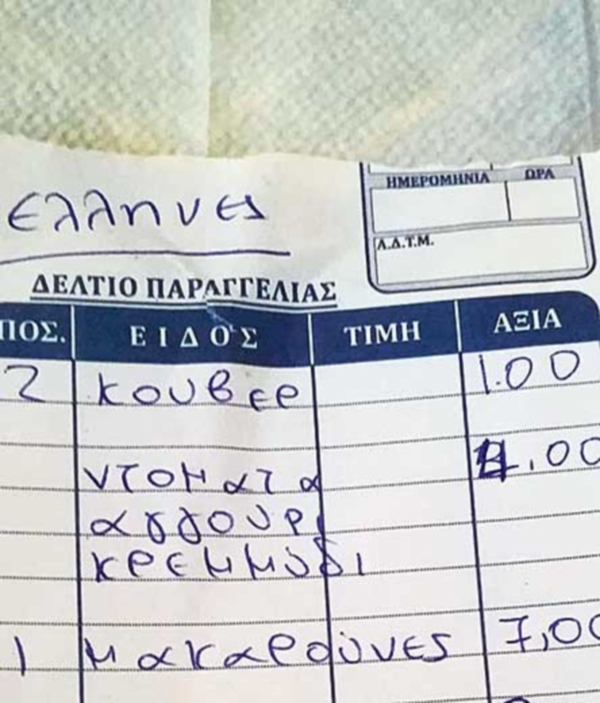 ΗΜΕΡΟΜΗΝΙΑ ΩΡΑ
ελληνες
Λ.Δ.Τ.Μ.
ΔΕΛΤΙΟ ΠΑΡΑΓΓΕΛΙΑΣ
ΠΟΣ. ΕΙΔΟΣ ΤΙΜΗ ΑΞΙΑ
2 κουβερ 1.00
ντοματα 4.00
αγγουρι
κρεμμυδι
1 μακαρούνες 7,00